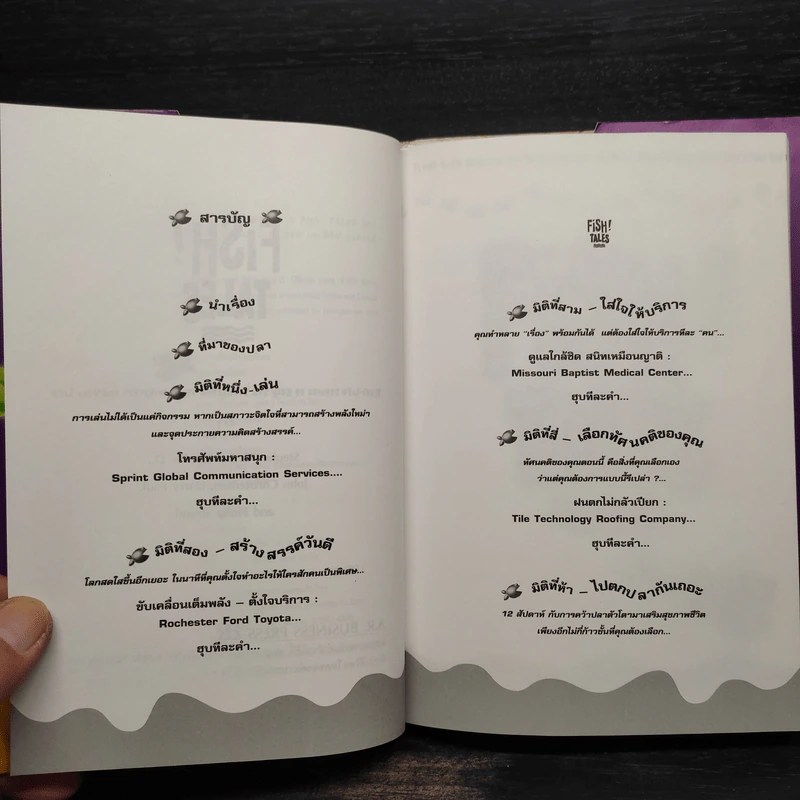 สารบัญ
นำเรื่อง
ที่มาของปลา
มิติที่หนึ่ง-เล่น
การเล่นไม่ได้เป็นแค่กิจกรรม หากเป็นสภาวะจิตใจที่สามารถสร้างพลังใหม่ๆ
และจุดประกายความคิดสร้างสรรค์...
โทรศัพท์มหาสนุก :
Sprint Global Communication Services....
ฮุบทีละคำ...
มิติที่สอง – สร้างสรรค์วันดี
โลกสดใสขึ้นอีกเยอะ ในนาทีที่คุณตั้งใจทำอะไรให้ใครสักคนเป็นพิเศษ...
ขับเคลื่อนเต็มพลัง – ตั้งใจบริการ :
Rochester Ford Toyota...
ฮุบทีละคำ...
FISH!
TALES
มิติที่สาม – ใส่ใจให้บริการ
คุณทำหลาย "เรื่อง" พร้อมกันได้ แต่ต้องใส่ใจให้บริการทีละ "คน"...
ดูแลใกล้ชิด สนิทเหมือนญาติ :
Missouri Baptist Medical Center...
ฮุบทีละคำ...
มิติที่สี่ – เลือกทัศนคติของคุณ
ทัศนคติของคุณตอนนี้ คือสิ่งที่คุณเลือกเอง
ว่าแต่คุณต้องการแบบนี้รึเปล่า ?...
ฝนตกไม่กลัวเปียก :
Tile Technology Roofing Company...
ฮุบทีละคำ...
มิติที่ห้า – ไปตกปลากันเถอะ
12 สัปดาห์ กับการคว้าปลาตัวโตมาเสริมสุขภาพชีวิต
เพียงอีกไม่กี่ก้าวชั้นที่คุณต้องเลือก...